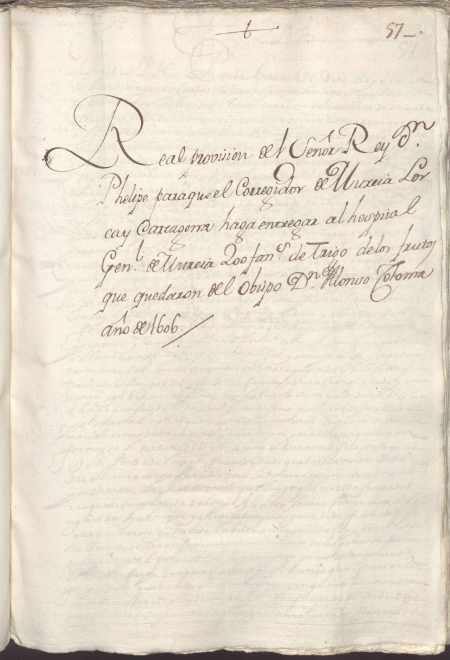 57
Real provision del Señor Rey Dn
Phelipe para que el Corregidor de Murcia Lor
ca y Cartagena haga entregar al hospital
Genl. de Murcia 200 fans. de Trigo de los frutos
que quedaron del Obispo Dn. Alonso Coloma
año de 1606